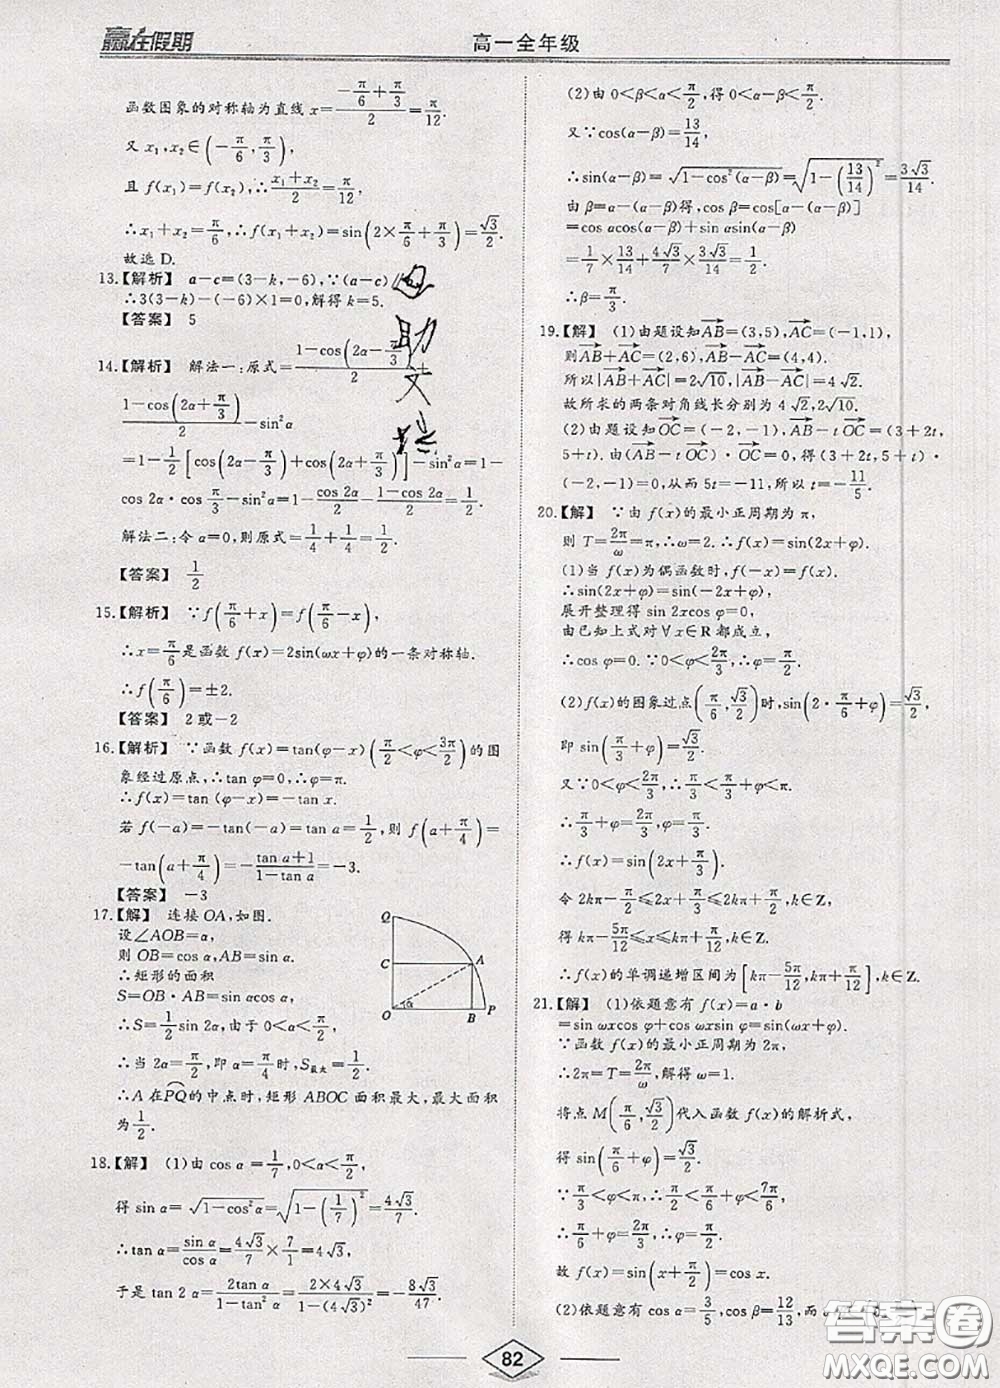 赢在假期
高一全年级
函数图象的对称轴为直线 x=(-π/6+π/3)/2=π/12.
又 x₁,x₂∈(-π/6,π/3),
且 f(x₁)=f(x₂),∴(x₁+x₂)/2=π/12,
∴x₁+x₂=π/6,∴f(x₁+x₂)=sin(2×π/6+π/3)=√3/2.
故选 D.
13.【解析】 a-c=(3-k,-6),∵(a-c)∥b,
∴3(3-k)-(-6)×1=0,解得 k=5.
【答案】 5
14.【解析】 解法一:原式=(1-cos(2α-π/3))/2+
(1-cos(2α+π/3))/2-sin²α
=1-1/2[cos(2α-π/3)+cos(2α+π/3)]-sin²α=1-
cos 2α·cos π/3-sin²α=1-cos 2α/2-(1-cos 2α)/2=1/2.
解法二:令 α=0,则原式=1/4+1/4=1/2.
【答案】 1/2
15.【解析】 ∵f(π/6+x)=f(π/6-x),
∴x=π/6是函数 f(x)=2sin(ωx+φ)的一条对称轴.
∴f(π/6)=±2.
【答案】 2 或-2
16.【解析】 ∵函数 f(x)=tan(φ-x)(π/2<φ<3π/2)的图
象经过原点,∴tan φ=0,
∴f(x)=tan (φ-x)=-tan x.
若 f(-a)=-tan(-a)=tan a=1/2,则 f(a+π/4)=
-tan(a+π/4)=-(tan a+1)/(1-tan a)=-3.
【答案】 -3
17.【解】 连接 OA,如图.
设∠AOB=α,
则 OB=cos α,AB=sin α.
∴矩形的面积
S=OB·AB=sin αcos α,
∴S=1/2 sin 2α,由于 0<α<π/2,
∴当 2α=π/2,即 α=π/4时,S最大=1/2.
∴A 在PQ的中点时,矩形 ABOC 面积最大,最大面积
为1/2.
Q
C
A
O
α
B
P
18.【解】 (1)由 cos α=1/7,0<α<π/2,
得 sin α=√(1-cos²α)=√(1-(1/7)²)=4√3/7.
∴tan α=sin α/cos α=4√3/7×7/1=4√3,
于是 tan 2α=2tan α/(1-tan²α)=2×4√3/(1-(4√3)²)=-8√3/47.
(2)由 0<β<α<π/2,得 0<α-β<π/2.
又∵cos(α-β)=13/14,
∴sin(α-β)=√(1-cos²(α-β))=√(1-(13/14)²)=3√3/14.
由 β=α-(α-β)得,cos β=cos[α-(α-β)]
=cos αcos(α-β)+sin αsin(α-β)
=1/7×13/14+4√3/7×3√3/14=1/2.
∴β=π/3.
19.【解】 (1)由题设知AB=(3,5),AC=(-1,1),
则AB+AC=(2,6),AB-AC=(4,4).
所以|AB+AC|=2√10,|AB-AC|=4√2.
故所求的两条对角线长分别为 4√2,2√10.
(2)由题设知OC=(-2,-1),AB-tOC=(3+2t,
5+t).由(AB-tOC)·OC=0,得(3+2t,5+t)·
(-2,-1)=0,从而 5t=-11,所以 t=-11/5.
20.【解】 ∵由 f(x)的最小正周期为 π,
则 T=2π/ω=π,∴ω=2.∴f(x)=sin(2x+φ).
(1)当 f(x)为偶函数时,f(-x)=f(x).
∴sin(2x+φ)=sin(-2x+φ),
展开整理得 sin 2xcos φ=0,
由已知上式对∀x∈R 都成立,
∴cos φ=0.∵0<φ<2π/3,∴φ=π/2.
(2)f(x)的图象过点(π/6,√3/2)时,sin(2·π/6+φ)=√3/2,
即 sin(π/3+φ)=√3/2.
又∵0<φ<2π/3,∴π/3<π/3+φ<π.
∴π/3+φ=2π/3,φ=π/3.
∴f(x)=sin(2x+π/3).
令 2kπ-π/2≤2x+π/3≤2kπ+π/2,k∈Z,
得 kπ-5π/12≤x≤kπ+π/12,k∈Z.
∴f(x)的单调递增区间为[kπ-5π/12,kπ+π/12],k∈Z.
21.【解】 (1)依题意有 f(x)=a·b
=sin ωxcos φ+cos ωxsin φ=sin(ωx+φ).
∵函数 f(x)的最小正周期为 2π,
∴2π=T=2π/ω,解得 ω=1.
将点 M(π/6,√3/2)代入函数 f(x)的解析式,
得 sin(π/6+φ)=√3/2.
∵π/3<φ<π,∴π/2<π/6+φ<7π/6,
∴π/6+φ=2π/3,∴φ=π/2.
故 f(x)=sin(x+π/2)=cos x.
(2)依题意有 cos α=3/5,cos β=12/13,而
82
答案圈
MXQE.COM